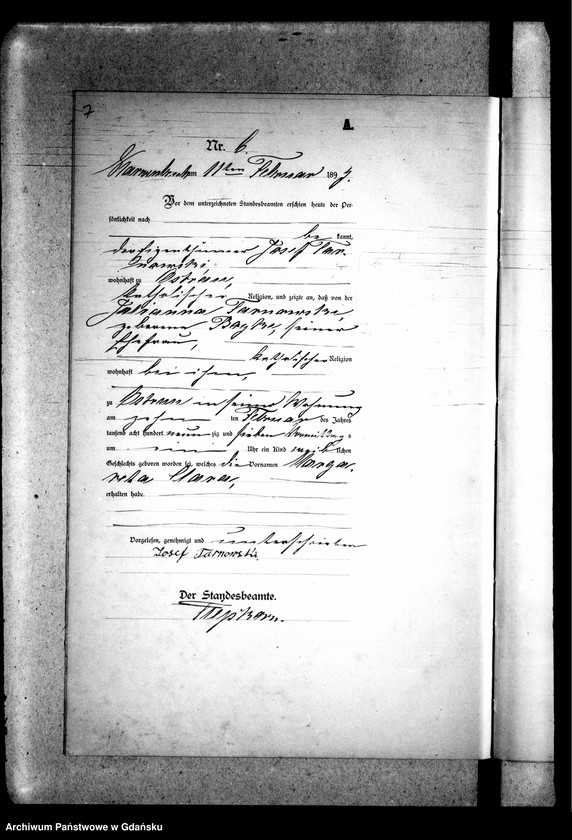 7
A.
Nr. 6.
am 11ten Februar 1897.
Vor dem unterzeichneten Standesbeamten erschien heute der Per-
sönlichkeit nach
be kannt,
der Eigenthümer Josef Tar-
nowski
wohnhaft zu Ostrau,
katholischer Religion, und zeigte an, daß von der
Julianna Tarnowski,
geborene seiner
Ehefrau,
katholischer Religion
wohnhaft bei ihm,
zu Ostrau in seiner Wohnung
am zehn ten Februar des Jahres
tausend acht hundert neun zig und sieben Vormittags
um ein Uhr ein Kind weib lichen
Geschlechts geboren worden sei, welches die Vornamen Marga-
reta Clara,
erhalten habe.
Vorgelesen, genehmigt und unterschrieben
Josef Tarnowski.
Der Standesbeamte.
Archiwum Państwowe w Gdańsku